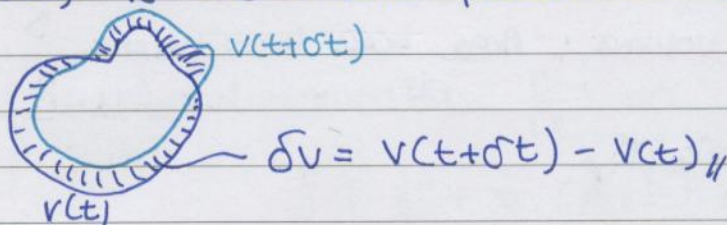 V(t+δt)
δV = V(t+δt) - V(t)
V(t)